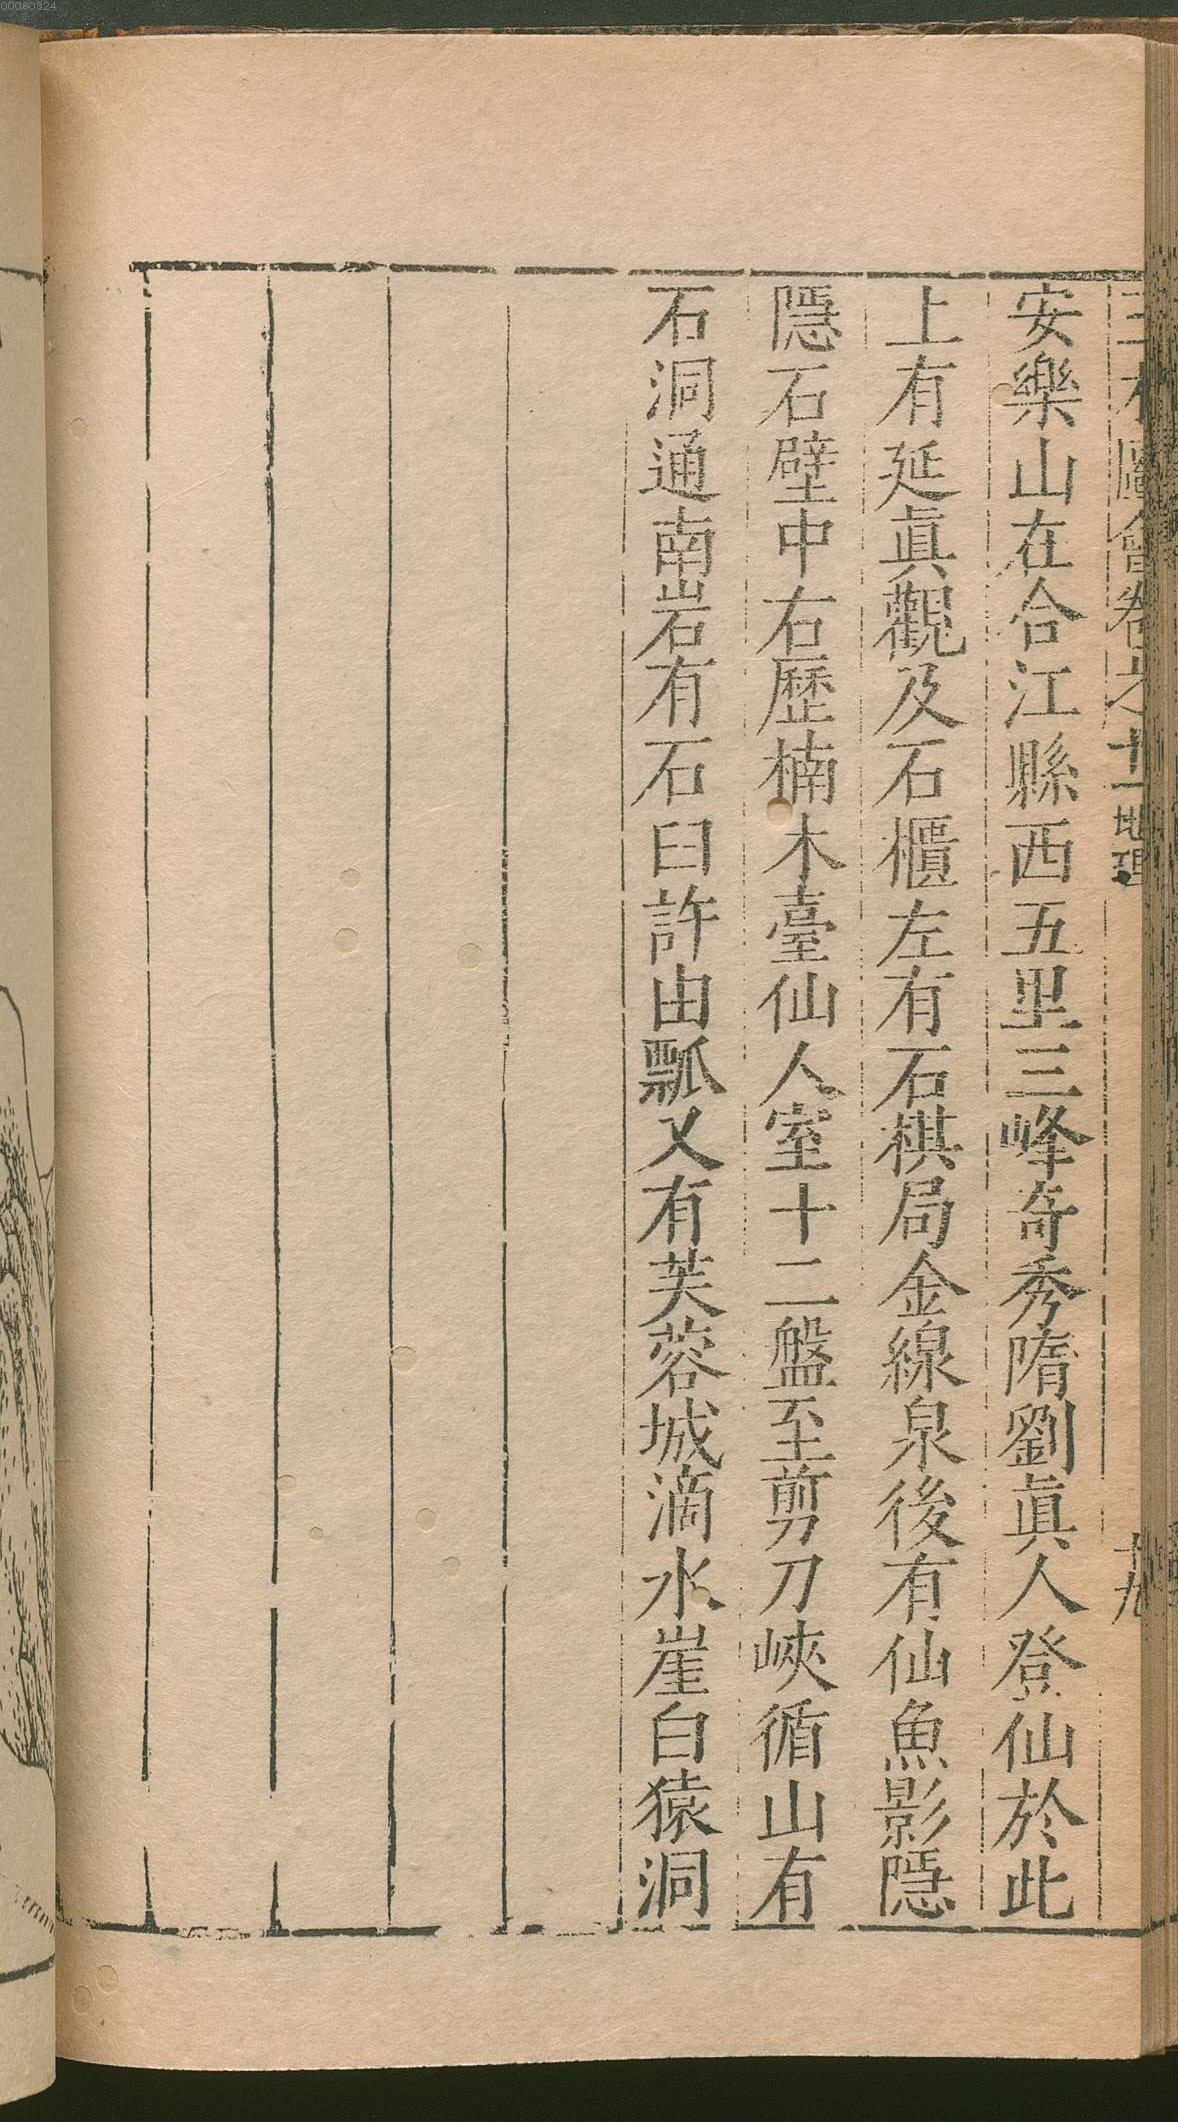 00080324
三才圖會卷之十一地理 十九
安樂山在合江縣西五里三峰奇秀隋劉眞人登仙於此
上有延眞觀及石櫃左有石棋局金線泉後有仙魚影隱
隱石壁中右歷楠木臺仙人室十二盤至剪刀峽循山有
石洞通南岩有石臼許由瓢又有芙蓉城滴水崖白猿洞